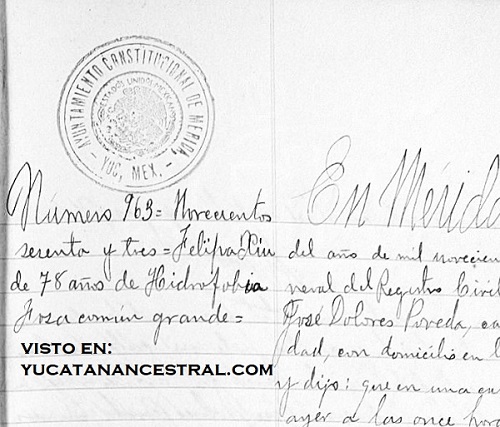 AYUNTAMIENTO CONSTITUCIONAL DE MERIDA,
- YUC, MEX. -
ESTADOS UNIDOS MEXICANOS
Número 963= Novecientos
sesenta y tres= Felipa Xiu
de 78 años de Hidrofobia
Fosa común grande=
En Mérida
del año de mil novecien
neral del Registro Civil
José Dolores Poveda, ca
dad, con domicilio en l
y dijo: que en una ca
ayer a las once hora
VISTO EN:
YUCATANANCESTRAL.COM